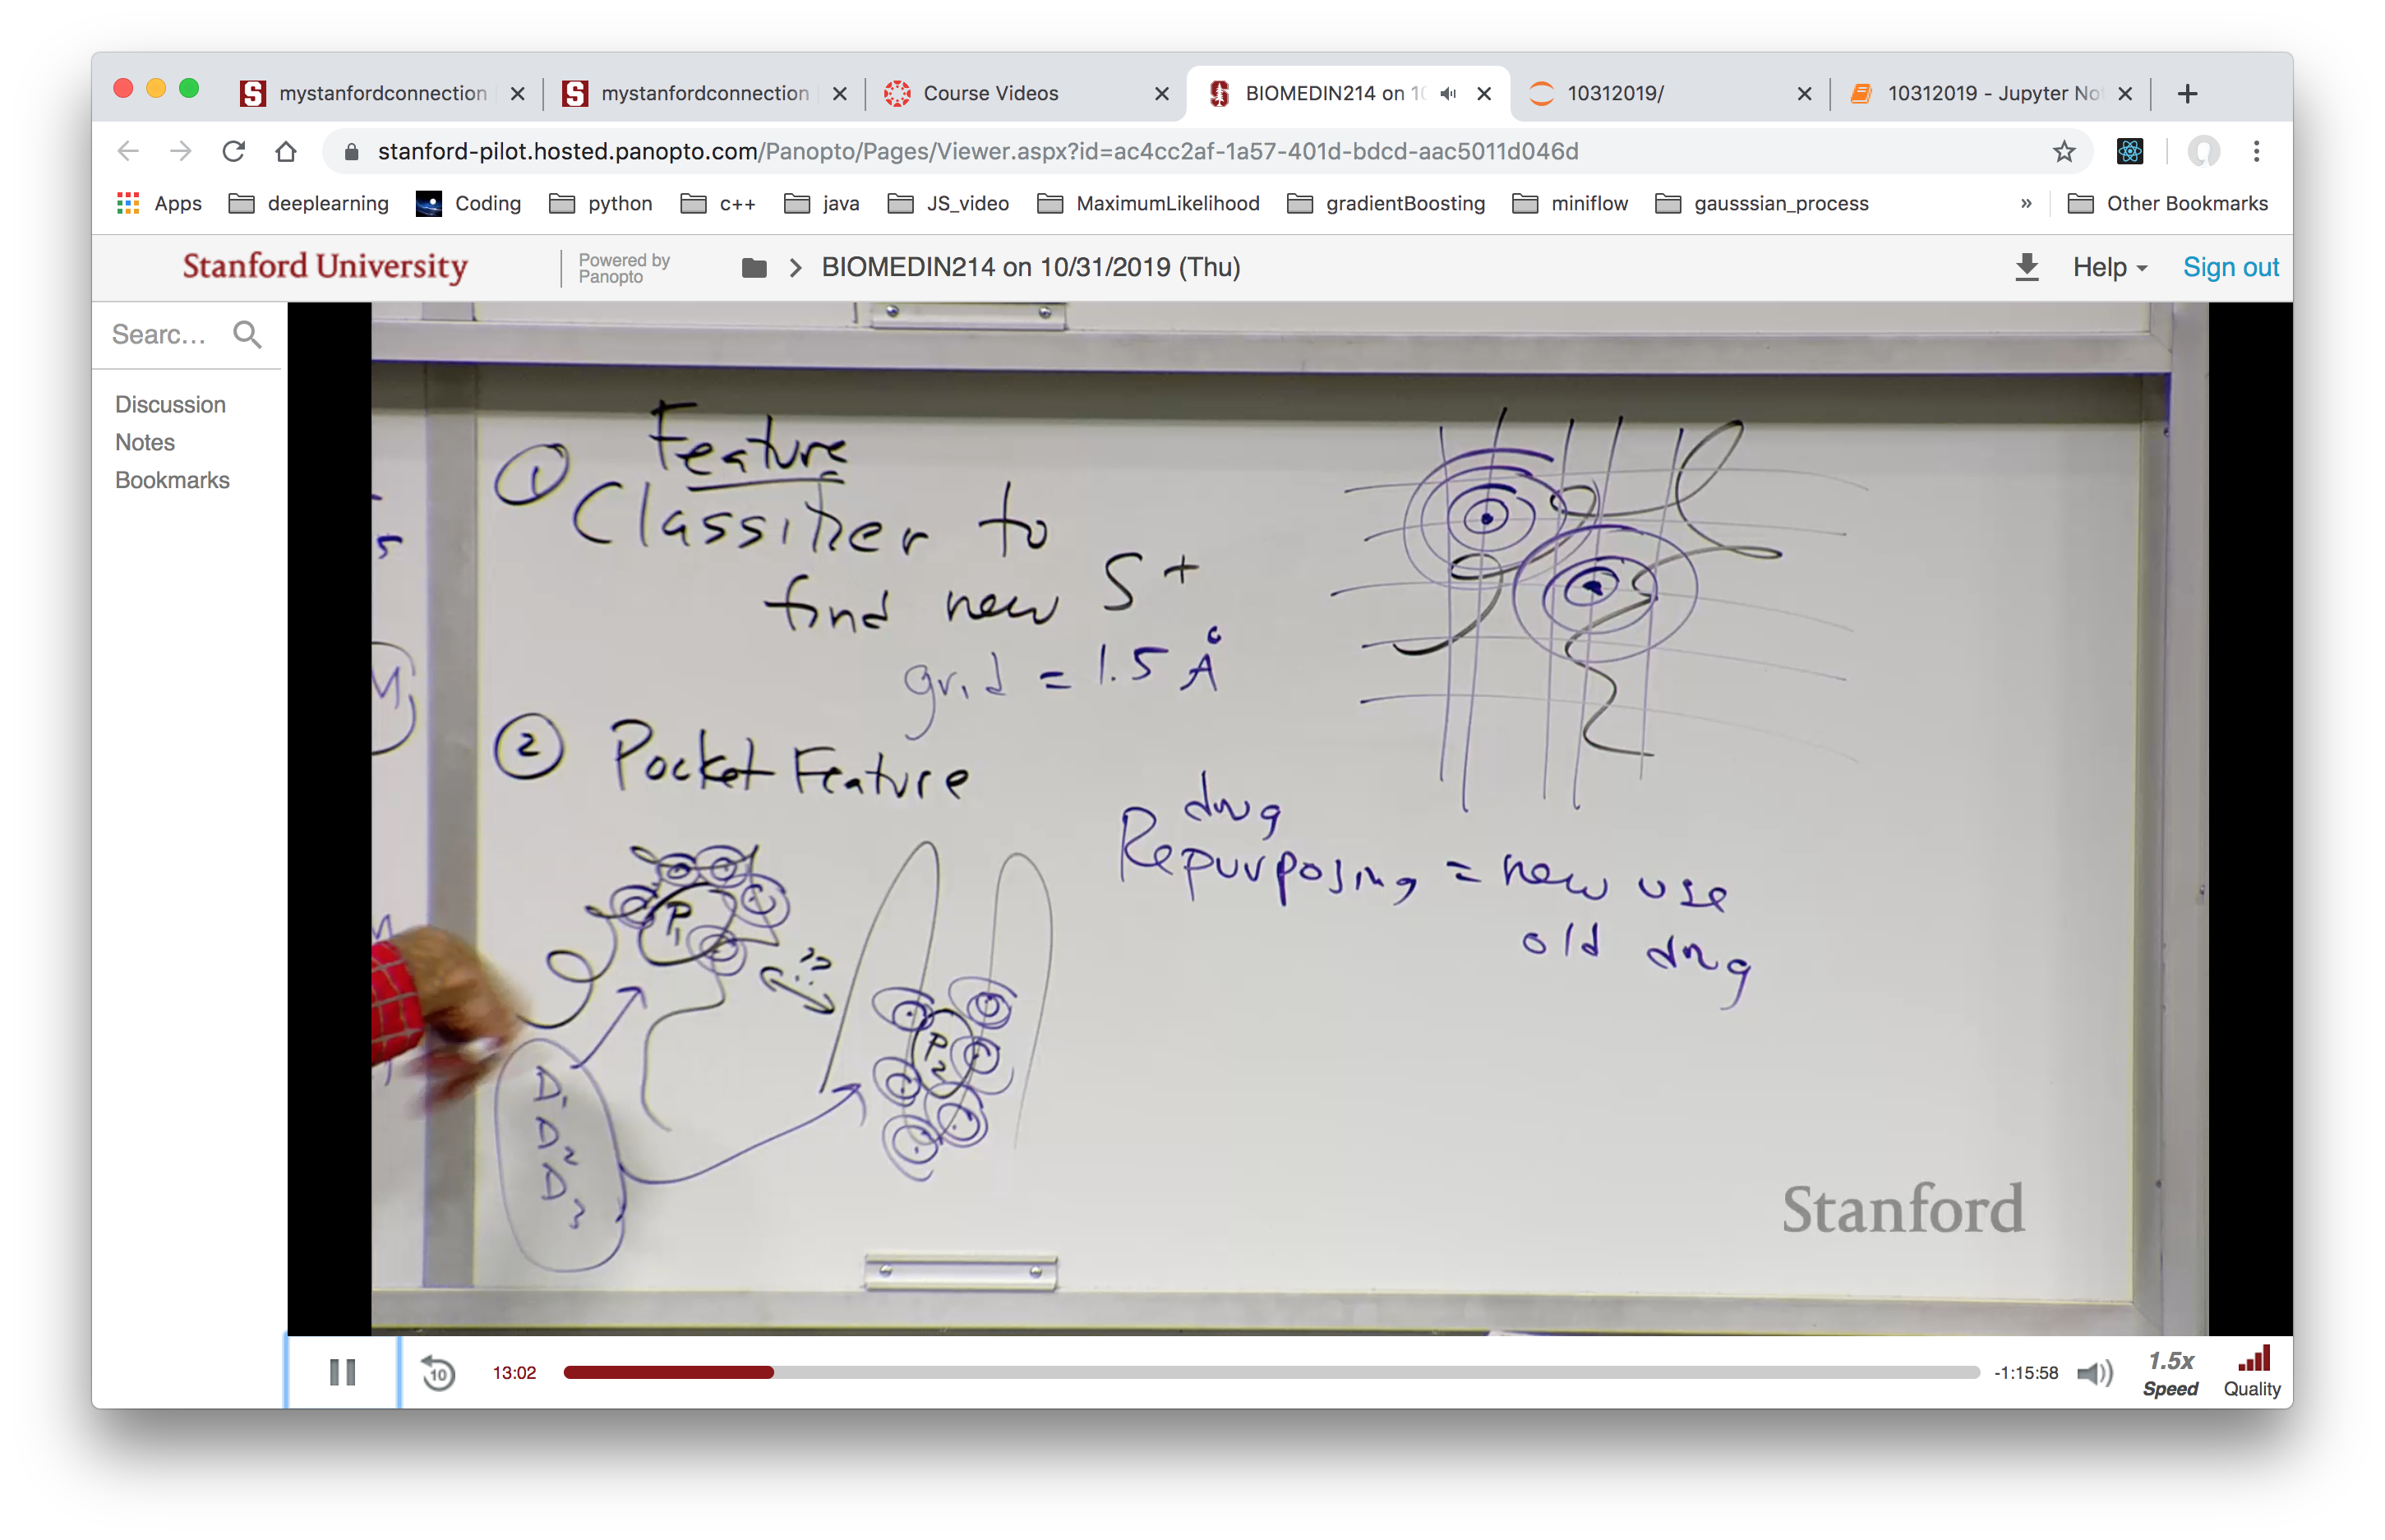 mystanfordconnection
mystanfordconnection
Course Videos
BIOMEDIN214 on 10
10312019/
10312019 - Jupyter No
stanford-pilot.hosted.panopto.com/Panopto/Pages/Viewer.aspx?id=ac4cc2af-1a57-401d-bdcd-aac5011d046d
Apps
deeplearning
Coding
python
c++
java
JS_video
MaximumLikelihood
gradientBoosting
miniflow
gausssian_process
»
Other Bookmarks
Stanford University
Powered by
Panopto
BIOMEDIN214 on 10/31/2019 (Thu)
Help
Sign out
Searc...
Discussion
Notes
Bookmarks
① Feature
Classifier to
find new S+
grid = 1.5 Å
② Pocket Feature
drug
Repurposing = new use
old drug
P1
??
P2
D1
D2
D3
Stanford
10
13:02
-1:15:58
1.5x
Speed
Quality